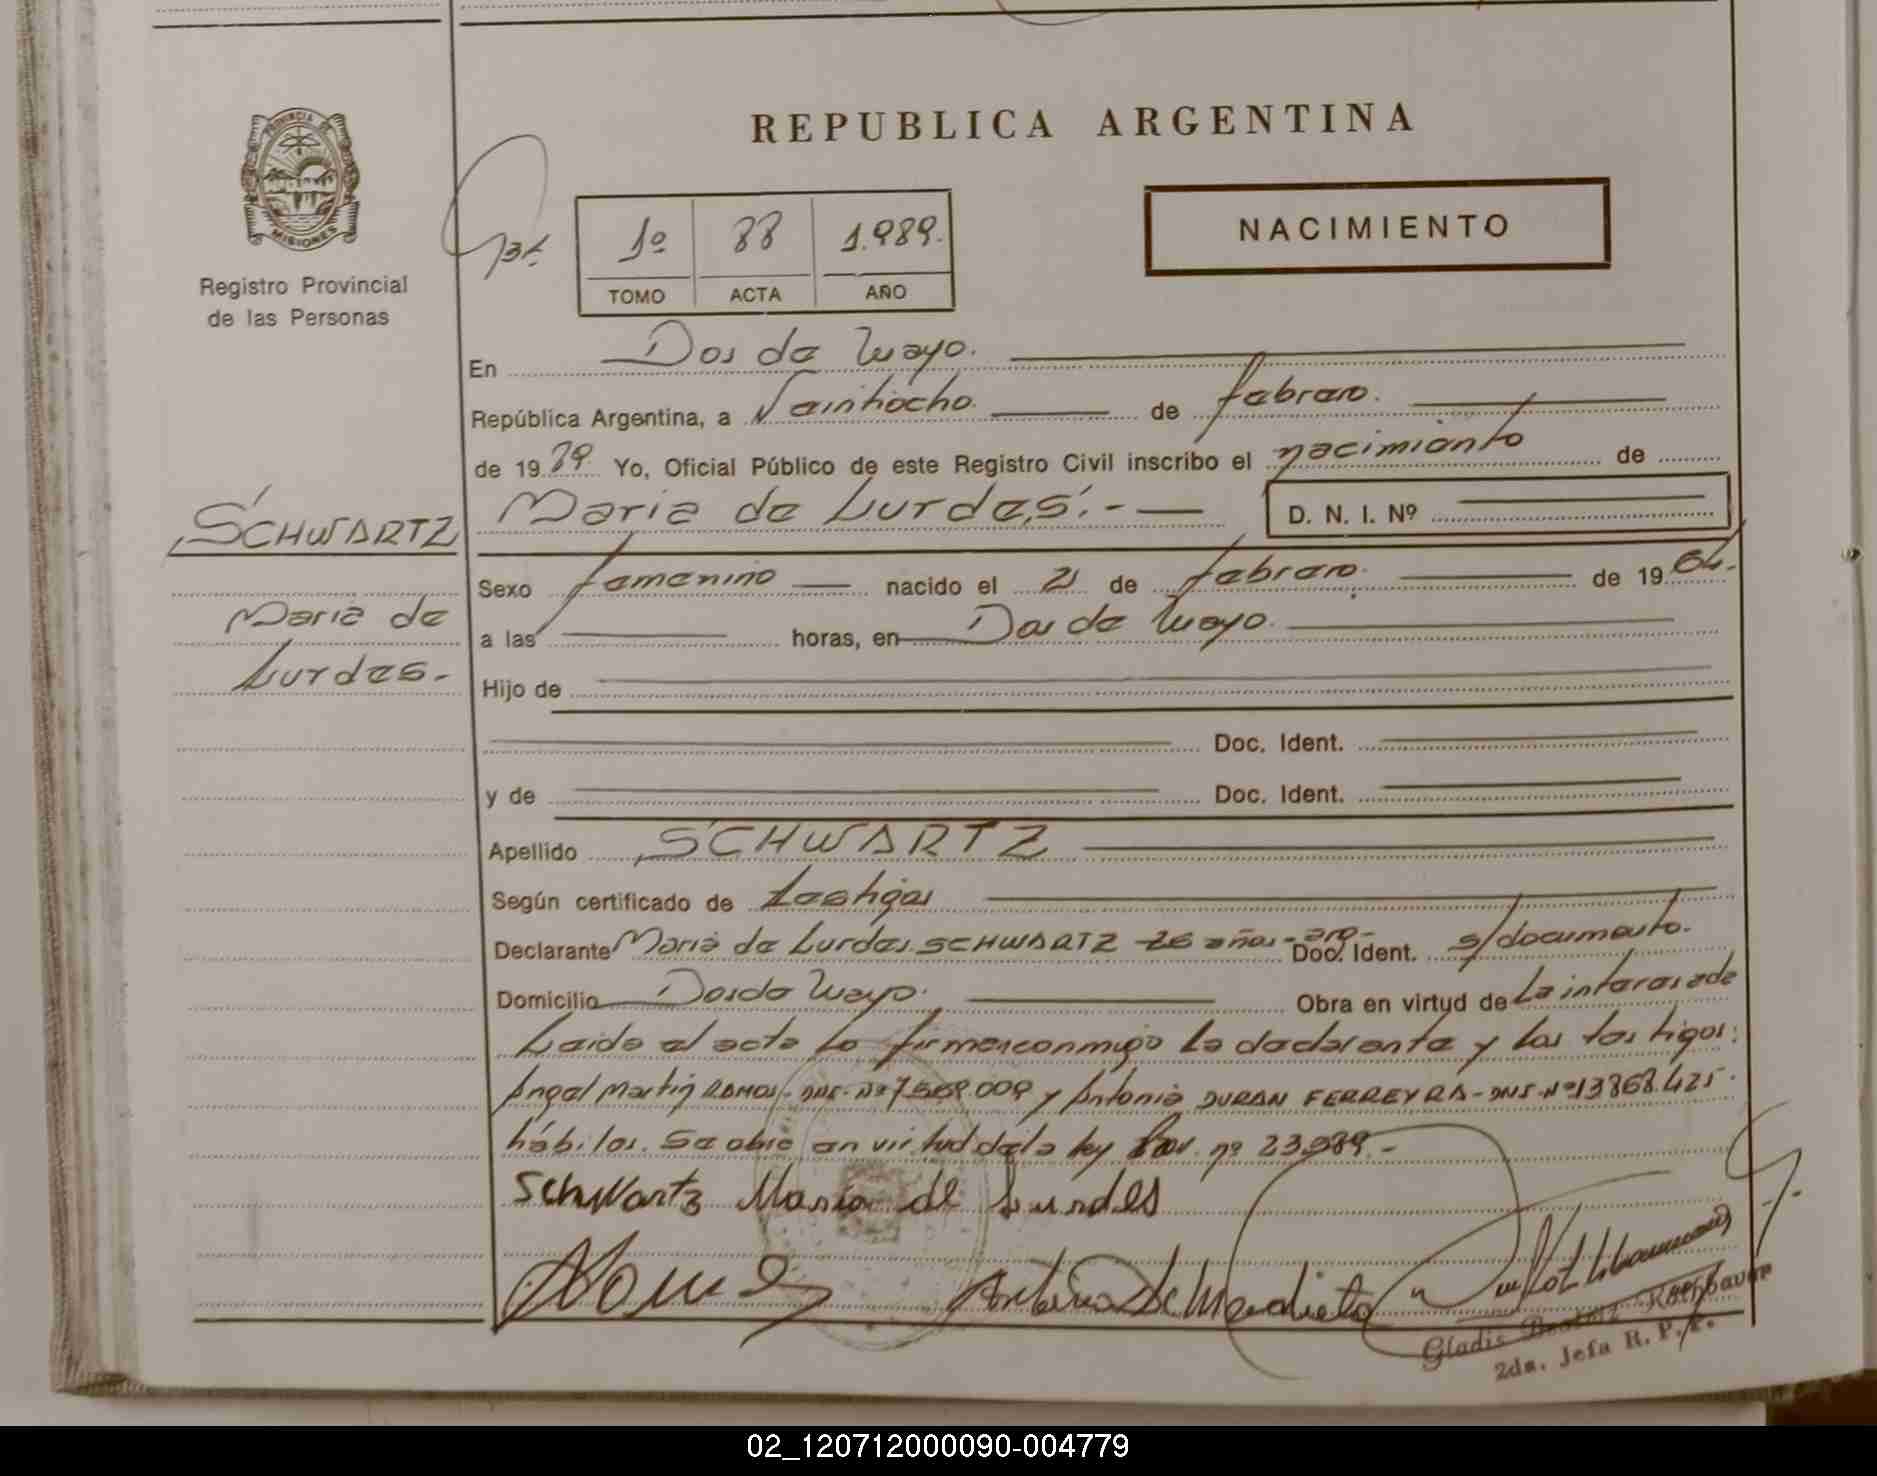 REPUBLICA ARGENTINA
PROVINCIA DE
MISIONES
Registro Provincial
de las Personas
1º 88 1.989.
TOMO ACTA AÑO
NACIMIENTO
En Dos de Mayo.
República Argentina, a Veintiocho. de febrero.
de 1989 Yo, Oficial Público de este Registro Civil inscribo el nacimiento de
SCHWARTZ
Maria de
Lurdes.-
Maria de Lurdes.- D. N. I. Nº
Sexo femenino nacido el 21 de febrero. de 1964.
a las horas, en Dos de Mayo.
Hijo de
Doc. Ident.
y de Doc. Ident.
Apellido SCHWARTZ
Según certificado de testigos
Declarante Maria de Lurdes SCHWARTZ -26 años- arg- Doc. Ident. s/documento.
Domicilio Dos de Mayo. Obra en virtud de La interesada
Leida el acta la firman conmigo la declarante y los testigos:
Angel Martin RAMOS- DNI- Nº 7.569.009 y Antonia DURAN FERREYRA- DNI-Nº 13868.425.
hábiles. Se obre en virtud de la ley nº 23.989.-
Schwartz Maria de Lurdes
Gladis Beatriz Rothbauer
2da. Jefa R. P. P.
02_120712000090-004779